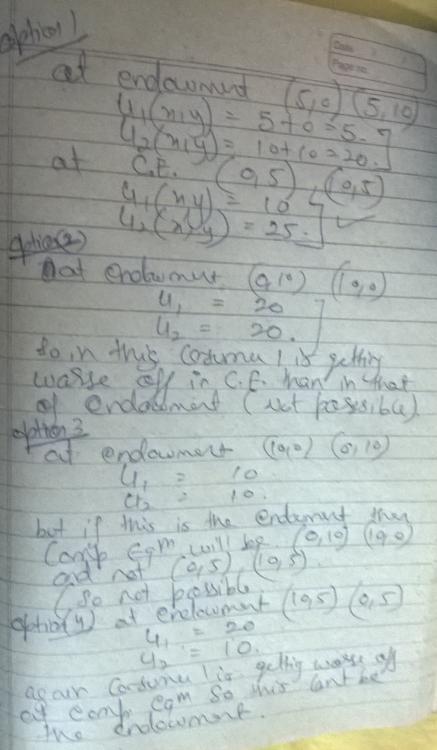 option 1
Date
Page no.
at endowment (5,0) (5,10)
u₁(x,y) = 5+0 = 5.
u₂(x,y) = 10+10 = 20.
at C.E. (0,5), (10,5)
u₁(x,y) = 10
u₂(x,y) = 25.
option(2)
at endowment (0,10) (10,0)
u₁ = 20
u₂ = 20.
So in this cosumer 1 is getting
warse off in C.E. than in that
of endowment (not possible)
option 3
at endowment (10,0) (0,10)
u₁ = 10
u₂ = 10.
but if this is the endowment then
Comp Eqm will be (0,10) (10,0)
ad not (0,5), (10,5).
(So not possible
option(4) at endowment (10,5) (0,5)
u₁ = 20
u₂ = 10.
again cosumer 1 is getting worse off
at comp eqm so this cant be
the endowment.